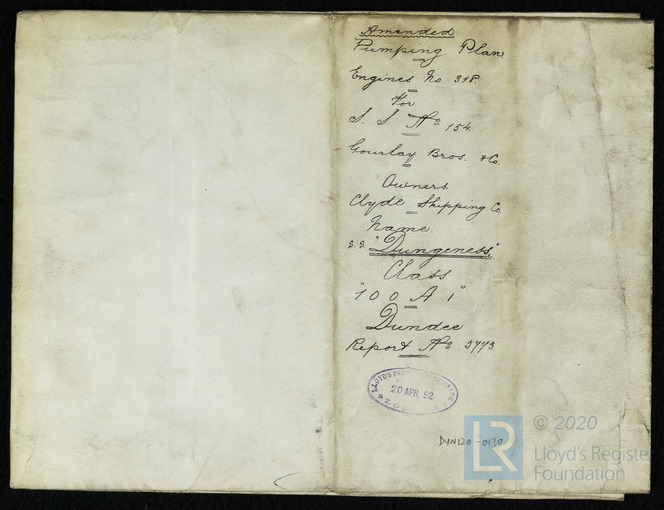 Amended
Pumping Plan
Engines No 318.
For
S. S. No 154.
Gourlay Bros. & Co.
Owners
Clyde Shipping Co.
Name
S.S. "Dungeness"
Class
"100 A 1"
Dundee
Report No 5773.
20 APR. 92
DUN120-0130
© 2020
LR
Lloyd's Registe
Foundation